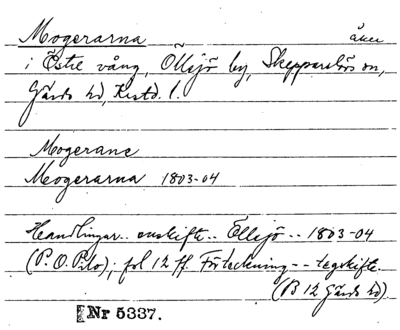 Mogerarna åker
i Östre vång, Ollsjö by, Skepparslövs sn,
Gärds hd, Krstd. l.
Mogerane
Mogerarna 1803-04
Handlingar.. enskifte.. Ollsjö .. 1803-04
(P. O. Pilo); fol 12 ff. Förteckning -- tegskifte.
(B 12 Gärds hd).
Nr 5337.